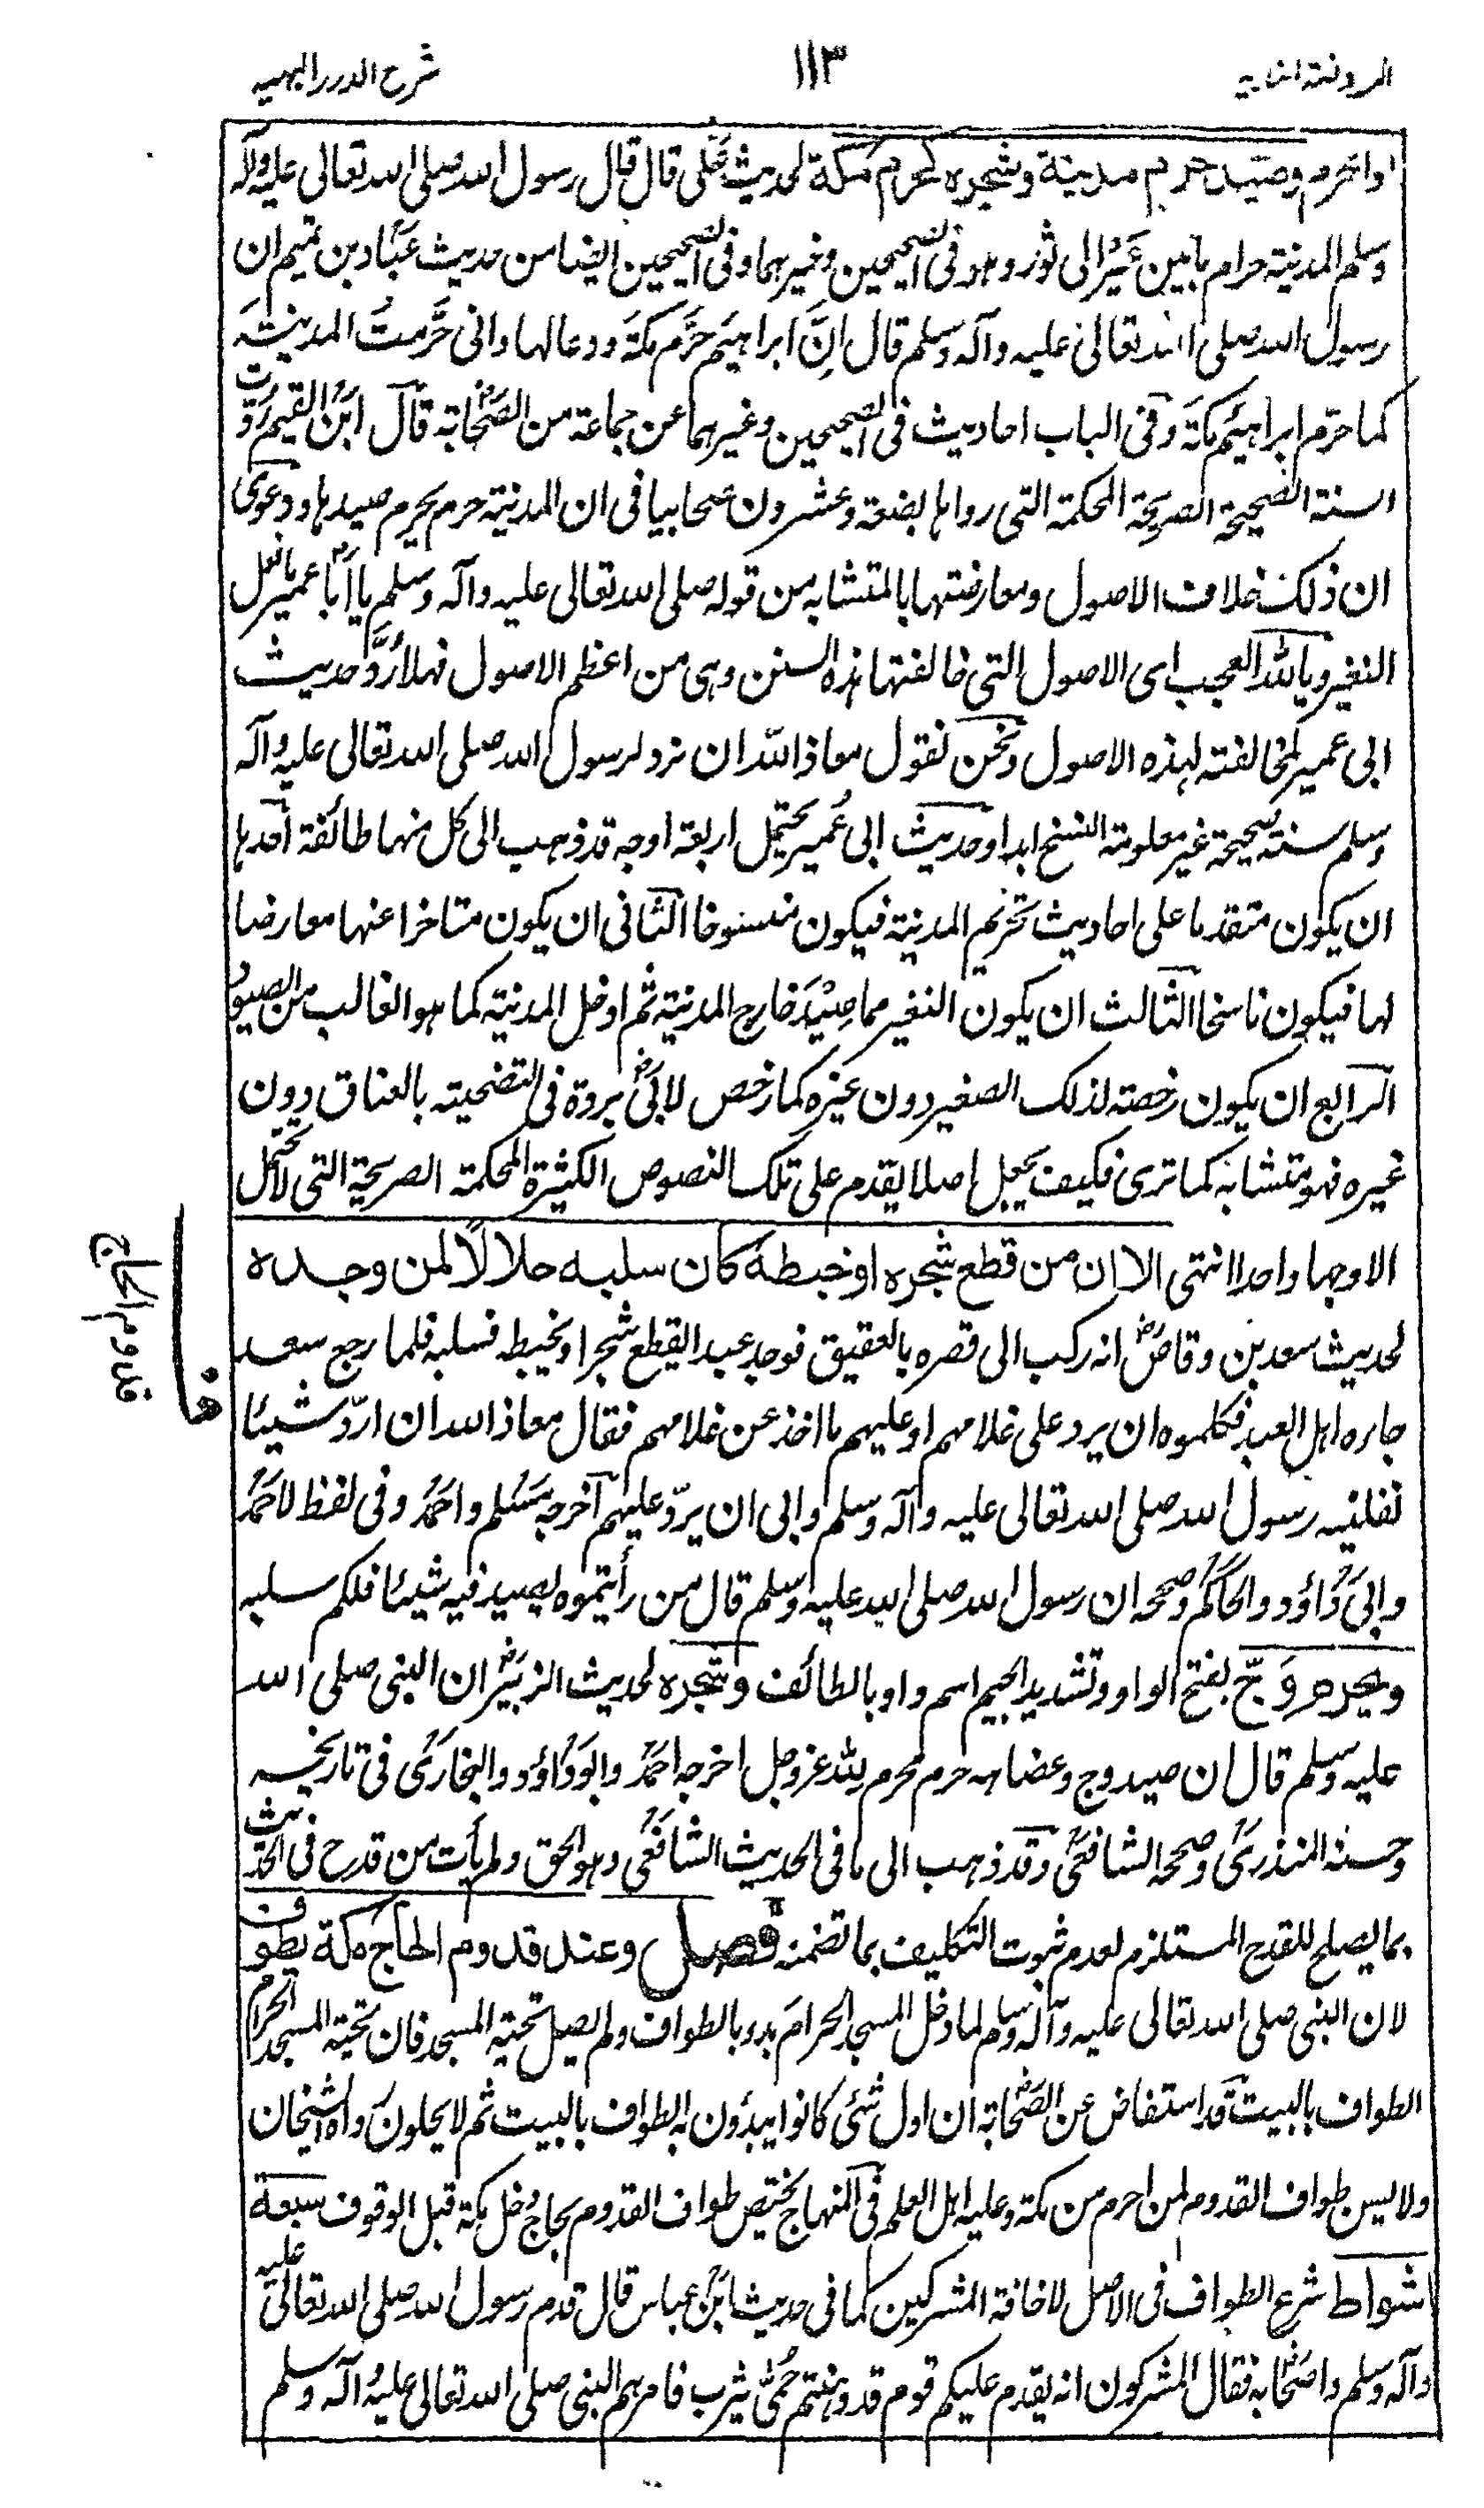 الروضة الندية ١١٣ شرح الدرر البهية
او اخرم وصيد حرم مدينة وشجره كحرم مكة لحديث على قال قال رسول الله صلى الله تعالى عليه وآله
وسلم المدينة حرام ما بين عَيْر الى ثور وهو فى الصحيحين وغيرهما وفى الصحيحين ايضا من حديث عبّاد بن تميم ان
رسول الله صلى الله تعالى عليه وآله وسلم قال انّ ابراهيم حرّم مكة ودعا لها وانى حرّمت المدينة
كما حرّم ابراهيم مكة وفى الباب احاديث فى الصحيحين وغيرهما عن جماعة من الصحابة قال ابن القيم رُدّت
السنة الصحيحة الصريحة المحكمة التى رواها بضعة وعشرون صحابيا فى ان المدينة حرم يحرم صيدها ودعوى
ان ذلك خلاف الاصول ومعارضتها بالمتشابه من قوله صلى الله تعالى عليه وآله وسلم يا أبا عمير ما فعل
النغير ويا لله العجب اى الاصول التى خالفتها هذه السنن وهى من اعظم الاصول فهلا رُدّ حديث
ابى عمير لمخالفته لهذه الاصول ونحن نقول معاذ الله ان نرد لرسول الله صلى الله تعالى عليه وآله
وسلم سنة صحيحة غير معلومة النسخ ابدا وحديث ابى عُمير يحتمل اربعة اوجه قد ذهب الى كل منها طائفة احدها
ان يكون متقدما على احاديث تحريم المدينة فيكون منسوخا الثانى ان يكون متاخرا عنها معارضا
لها فيكون ناسخا الثالث ان يكون النغير مما صِيْدَ خارج المدينة ثم ادخل المدينة كما هو الغالب من الصيود
الرابع ان يكون رخصة لذلك الصغير دون غيره كما رخص لابى بردة فى التضحية بالعناق دون
غيره فهو متشابه كما ترى فكيف يجعل اصلا يقدم على تلك النصوص الكثيرة المحكمة الصريحة التى لا تحتمل
الا وجها واحدا انتهى الا ان من قطع شجره او خبطه كان سلبه حلالًا لمن وجده
لحديث سعد بن وقاص انه ركب الى قصره بالعقيق فوجد عبدا يقطع شجرا او يخبطه فسلبه فلما رجع سعد
جاءه اهل العبد فكلموه ان يرد على غلامهم او عليهم ما اخذ عن غلامهم فقال معاذ الله ان اردّ شيئا
نفلنيه رسول الله صلى الله تعالى عليه وآله وسلم وابى ان يردّ عليهم آخرجه مسلم واحمد وفى لفظ لاحمد
وابى داؤد والحاكم وصححه ان رسول الله صلى الله عليه وسلم قال من رأيتموه يصيد فيه شيئا فلكم سلبه
ويحرم صيد وَجّ بفتح الواو وتشديد الجيم اسم واد بالطائف وشجره لحديث الزبير ان النبى صلى الله
عليه وسلم قال ان صيد وج وعضاهه حرم محرم لله عز وجل اخرجه احمد وابو داؤد والبخارى فى تاريخه
وحسنه المنذرى وصححه الشافعى وقد ذهب الى ما فى الحديث الشافعى وهو الحق ولم يأت من قدح فى الحديث
بما يصلح للقدح المستلزم لعدم ثبوت التكليف بما تضمنه فصل وعند قدوم الحاج مكة يطوف
لان النبى صلى الله تعالى عليه وآله وسلم لما دخل المسجد الحرام بدء بالطواف ولم يصل تحية المسجد فان تحية المسجد الحرام
الطواف بالبيت قد استفاض عن الصحابة ان اول شئ كانوا يبدؤن به الطواف بالبيت ثم لا يحلون رواه الشيخان
ولا يسن طواف القدوم لمن احرم من مكة وعليه اهل العلم فى المنهاج يختص طواف القدوم بحاج دخل مكة قبل الوقوف سبعة
اشواط شرع الطواف فى الاصل لاخافة المشركين كما فى حديث ابن عباس قال قدم رسول الله صلى الله تعالى عليه
وآله وسلم واصحابه فقال المشركون انه يقدم عليكم قوم قد وهنتهم حُمّى يثرب فامرهم النبى صلى الله تعالى عليه وآله وسلم
قدوم الحاج